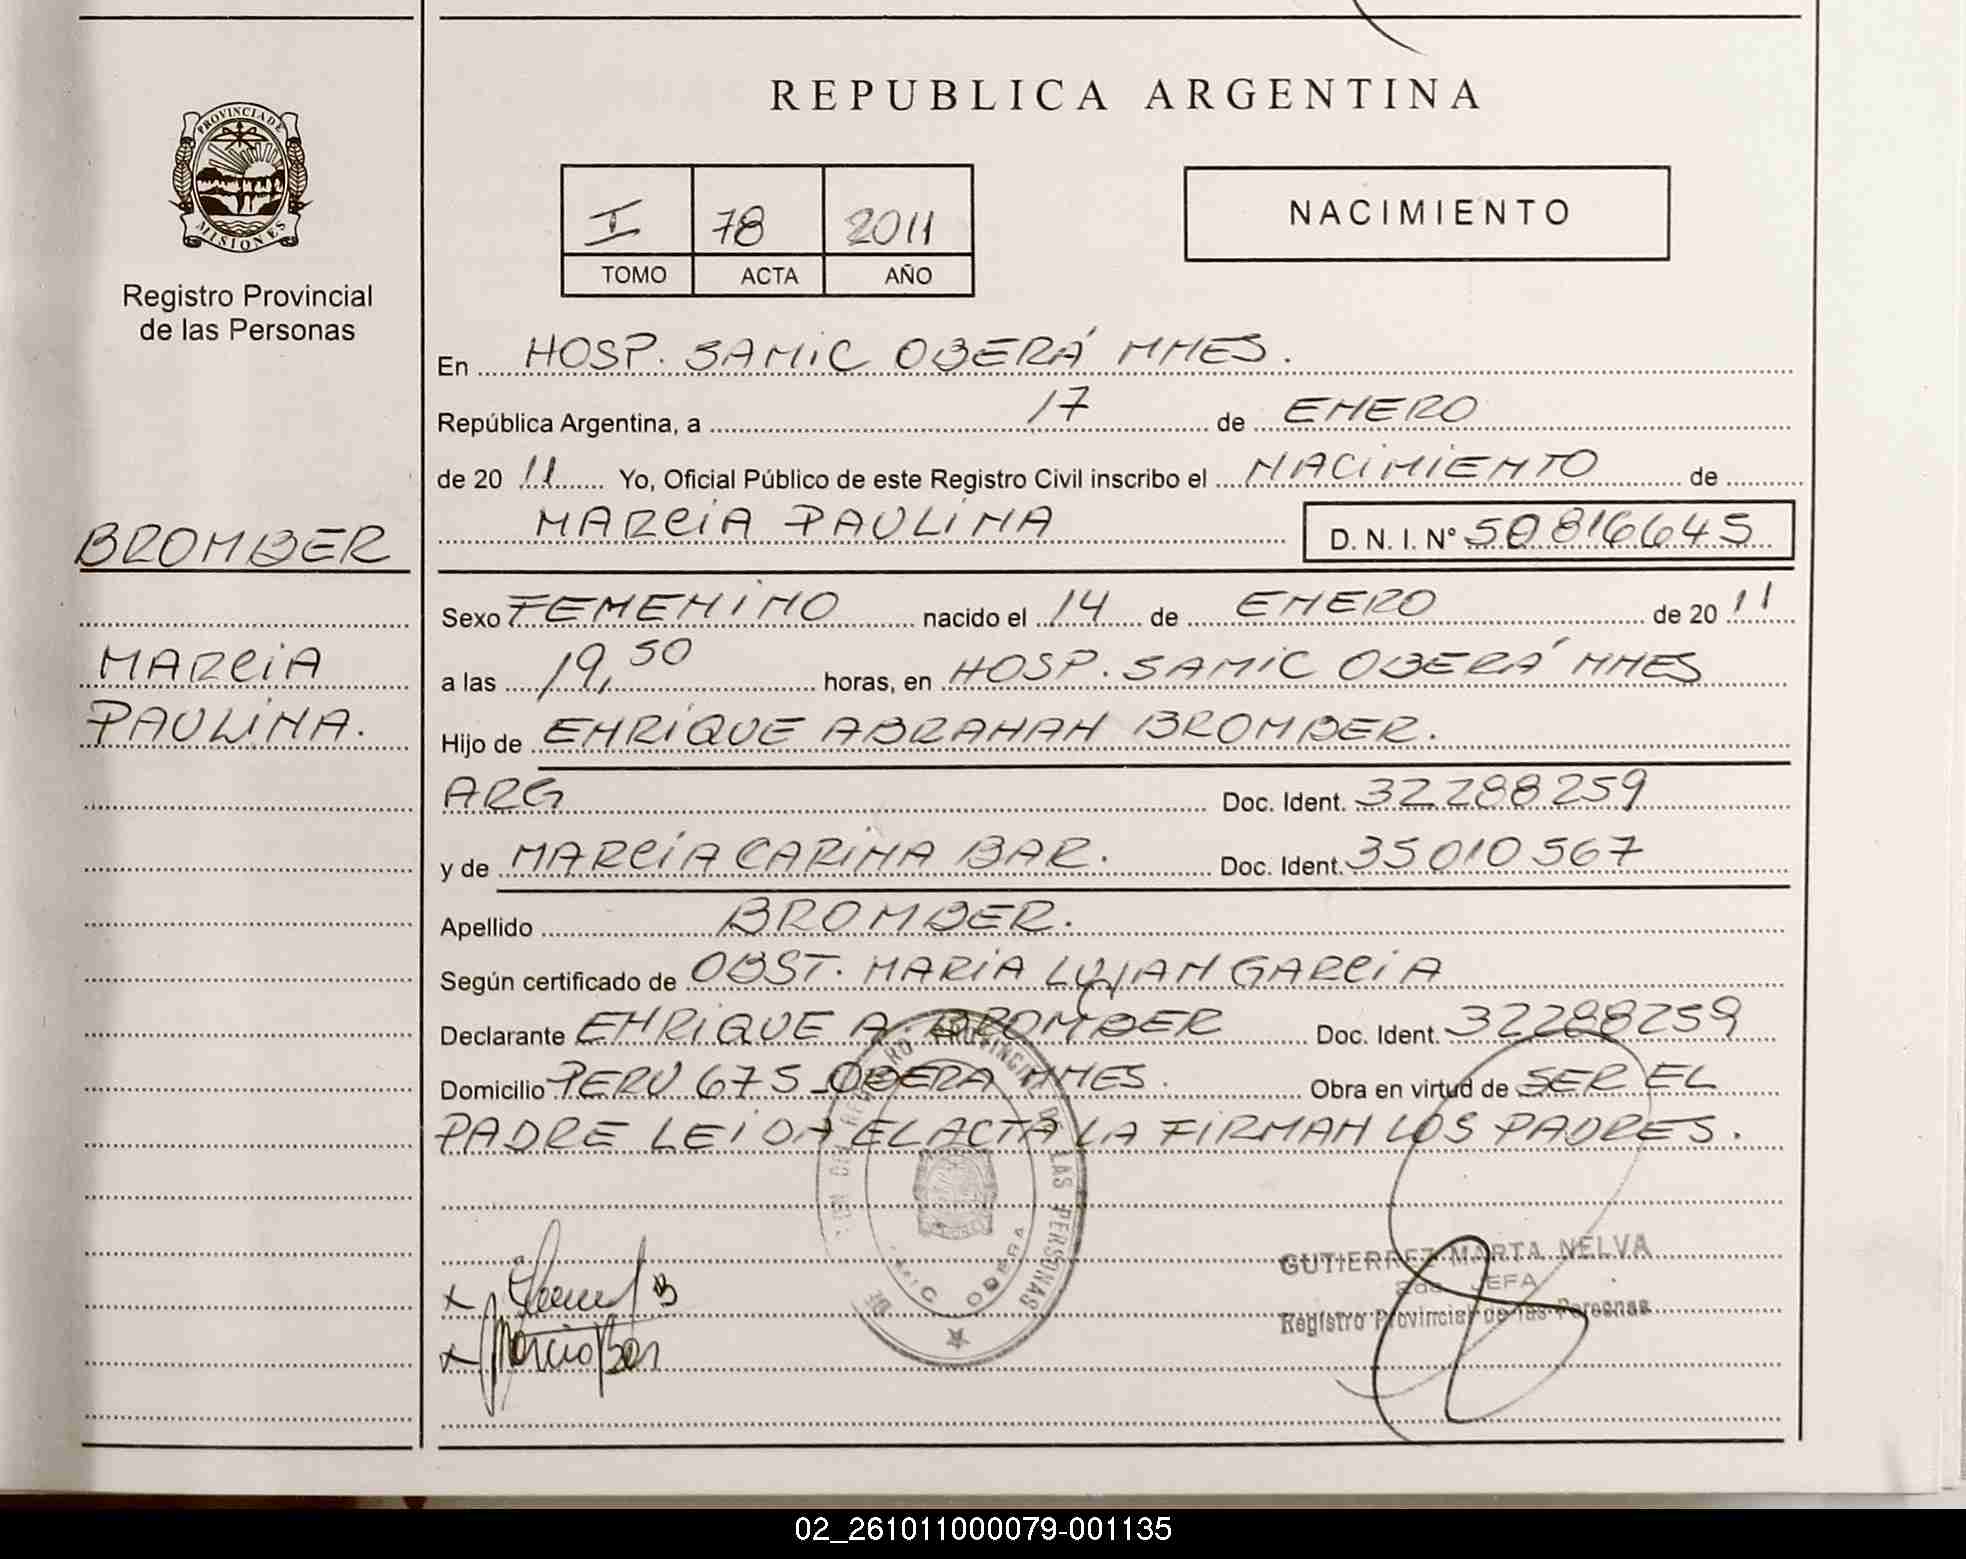 PROVINCIA DE
MISIONES
Registro Provincial
de las Personas
BROMBER
MARCIA
PAULINA.
REPUBLICA ARGENTINA
I 78 2011
TOMO ACTA AÑO
NACIMIENTO
En HOSP. SAMIC OBERÁ MNES.
República Argentina, a 17 de ENERO
de 20 11 Yo, Oficial Público de este Registro Civil inscribo el NACIMIENTO de
MARCIA PAULINA D. N. I. N° 50816645
Sexo FEMENINO nacido el 14 de ENERO de 20 11
a las 19,50 horas, en HOSP. SAMIC OBERÁ MNES
Hijo de ENRIQUE ABRAHAN BROMBER.
ARG Doc. Ident. 32288259
y de MARCIA CARINA BAR. Doc. Ident. 35010567
Apellido BROMBER.
Según certificado de OBST. MARIA LUJAN GARCIA
Declarante ENRIQUE A. BROMBER Doc. Ident. 32288259
Domicilio PERU 675 OBERA MNES. Obra en virtud de SER EL
PADRE LEIDA EL ACTA LA FIRMAN LOS PADRES.
REGISTRO PROVINCIAL DE LAS PERSONAS
OBERA
GUTIERREZ MARTA NELVA
2da JEFA
Registro Provincial de las Personas
x
x Marcia Bar
02_261011000079-001135